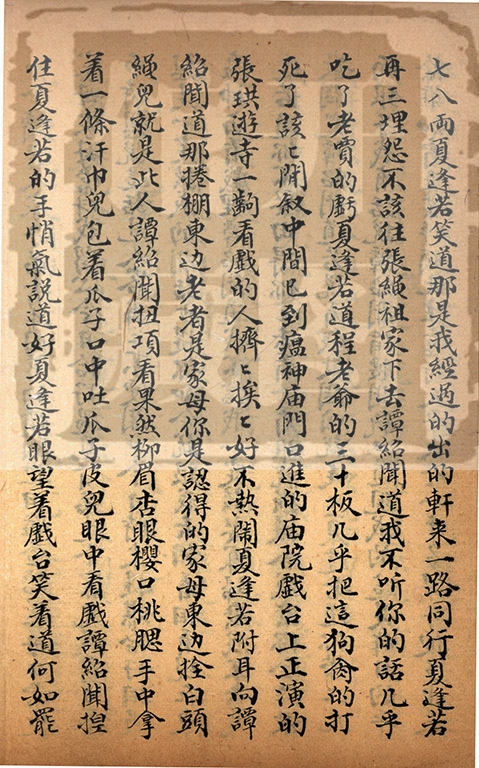 七八両夏逢若笑道那是我經過的出的軒来一路同行夏逢若
再三埋怨不該往張繩祖家下去譚紹聞道我不听你的話几乎
吃了老賈的虧夏逢若道程老爺的三十板几乎把這狗肏的打
死了該ヒ閒叙中間已到瘟神庙門口進的庙院戲台上正演的
張珙遊寺一齣看戲的人擠ヒ挨ヒ好不熱鬧夏逢若附耳向譚
紹聞道那捲棚東边老者是家母你是認得的家母東边拴白頭
繩兒就是此人譚紹聞扭項看果然柳眉杏眼櫻口桃腮手中拿
着一條汗巾兒包着瓜子口中吐瓜子皮兒眼中看戲譚紹聞揑
住夏逢若的手悄氣説道好夏逢若眼望着戲台笑着道何如罷